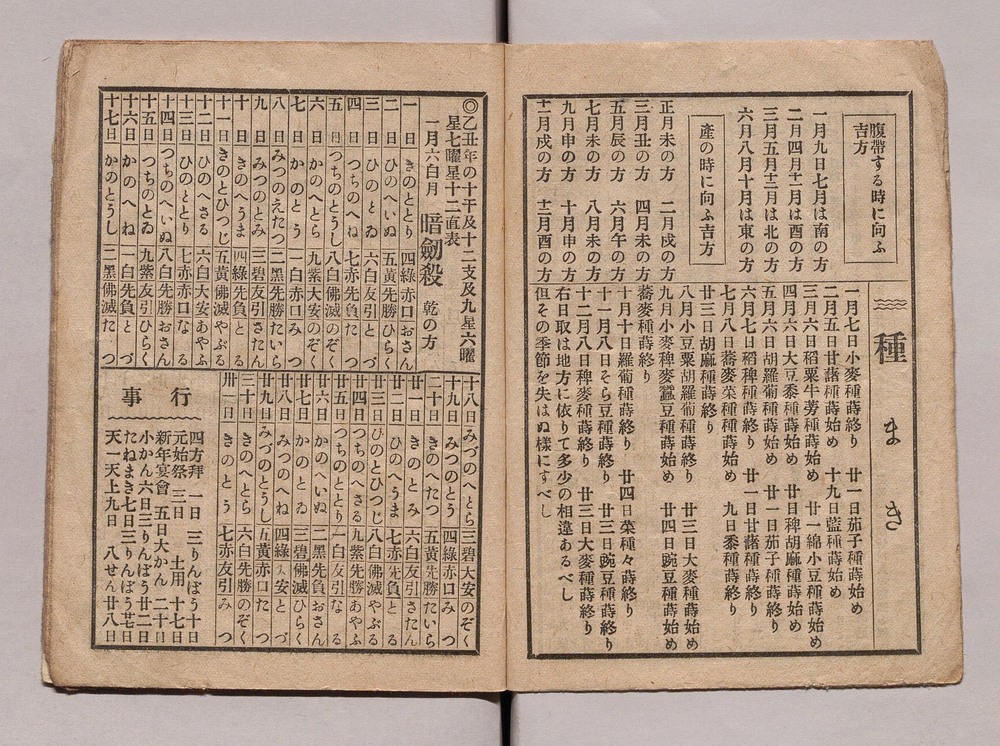 腹帶する時に向ふ
吉方
一月九日七月は南の方
二月四月十一月は酉の方
三月五月十二月は北の方
六月八月十月は東の方
產の時に向ふ吉方
正月未の方　二月戌の方
三月丑の方　四月未の方
五月辰の方　六月午の方
七月未の方　八月未の方
九月申の方　十月申の方
十一月戌の方　十二月酉の方
種まき
一月七日小麥種蒔終り　廿一日茄子種蒔始め
二月五日甘藷種蒔始め　十九日藍種蒔始め
三月六日稻粟牛蒡種蒔始め　廿一綿小豆種蒔始め
四月六日大豆黍種蒔始め　廿日稗胡麻種蒔始め
五月六日胡羅蔔種蒔始め　廿一日茄子種蒔終り
六月七日稻稗種蒔終り　廿一日甘藷種蒔終り
七月八日蕎麥菜種種蒔始め　九日黍種蒔終り
廿三日胡麻種蒔終り
八月小豆粟胡羅蔔種蒔終り　廿三日大麥種蒔始め
九月小麥稗麥蠶豆種蒔始め　廿四日豌豆種蒔始め
蕎麥種蒔終り
十月十日羅蔔種蒔終り　廿四日菜種々蒔終り
十一月八日そら豆種蒔終り　廿三日豌豆種蒔終り
十二月八日稗麥種蒔終り　廿三日大麥種蒔終り
右日取は地方に依りて多少の相違あるべし
但その季節を失はぬ樣にすべし
◎乙丑年の十干及十二支及九星六曜
星七曜星十二直表
一月六白月　暗劒殺　乾の方
一日　きのととり　四綠赤口おさん
二日　ひのへいぬ　五黃先勝ひらく
三日　ひのとゐ　六白友引とづ
四日　つちのへね　七赤先負たつ
五日　つちのとうし　八白佛滅のぞく
六日　かのへとら　九紫大安のぞく
七日　かのとう　一白赤口みつ
八日　みつのえたつ　二黑先勝たいら
九日　みつのとみ　三碧友引さたん
十日　きのへうま　四綠先負とる
十一日　きのとひつじ　五黃佛滅やぶる
十二日　ひのへさる　六白大安あやふ
十三日　ひのととり　七赤赤口なる
十四日　つちのへいぬ　八白先勝おさん
十五日　つちのとゐ　九紫友引ひらく
十六日　かのへね　一白先負とづ
十七日　かのとうし　二黑佛滅たつ
十八日　みづのへとら　三碧大安のぞく
十九日　みつのとう　四綠赤口みつ
二十日　きのへたつ　五黃先勝たいら
廿一日　きのとみ　六白友引さたん
廿二日　ひのへうま　七赤先負とる
廿三日　ひのとひつじ　八白佛滅やぶる
廿四日　つちのへさる　九紫先勝あやふ
廿五日　つちのととり　一白友引なる
廿六日　かのへいぬ　二黑先負おさん
廿七日　かのとゐ　三碧佛滅ひらく
廿八日　みつのへね　四綠大安とづ
廿九日　みづのとうし　五黃赤口たつ
三十日　きのへとら　六白先勝のぞく
卅一日　きのとう　七赤友引みつ
行事
四方拜　一日　三りんぼう十日
元始祭　三日　土用　十七日
新年宴會　五日大かん　二十日
小かん六日三りんぼう廿二日
たねまき七日三りんぼう廿七日
天一天上九日　八せん廿八日